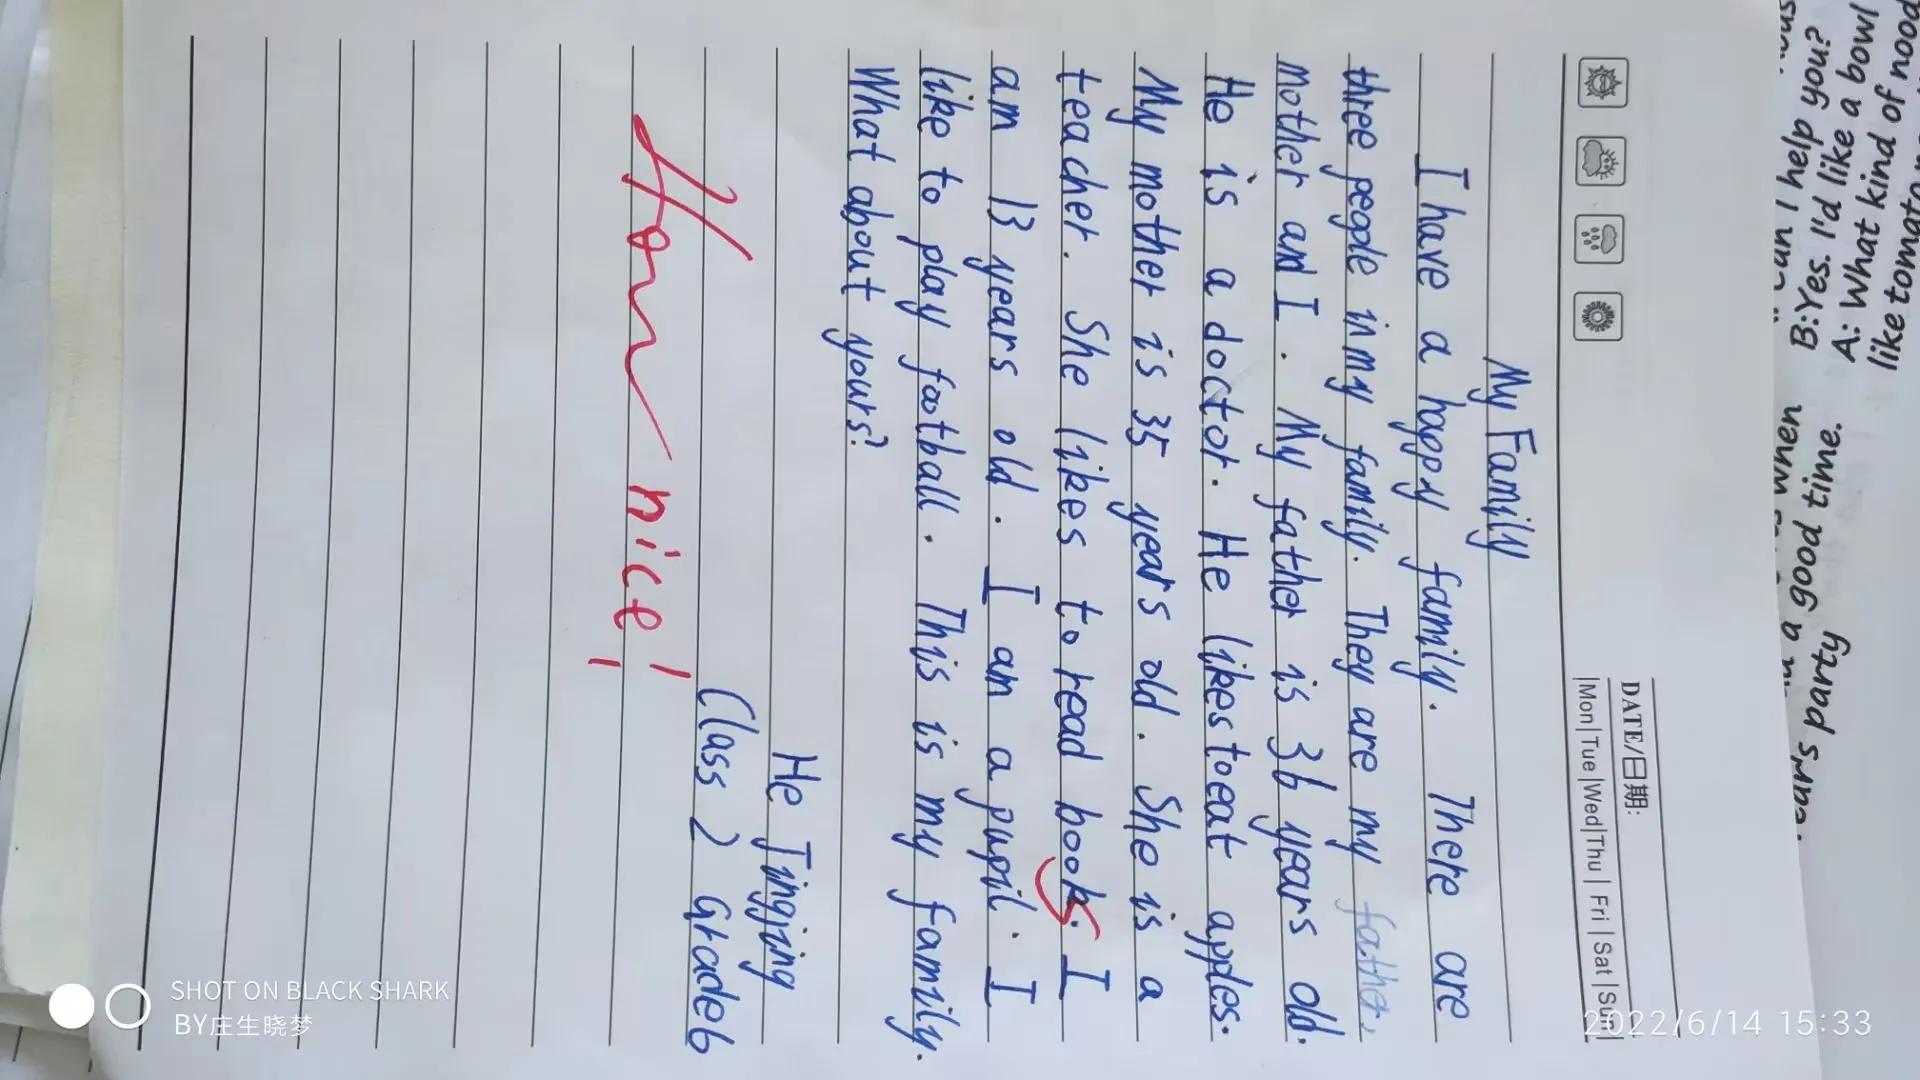 DATE/日期:
Mon|Tue|Wed|Thu|Fri|Sat|Sun
My Family
I have a happy family. There are
three people in my family. They are my father,
mother and I. My father is 36 years old.
He is a doctor. He likes to eat apples.
My mother is 35 years old. She is a
teacher. She likes to read books. I
am 13 years old. I am a pupil. I
like to play football. This is my family.
What about yours?
He Tingjing
Class 2 Grade6
nice!
can I help you?
B:Yes. I'd like a bowl
A: What kind of nood
like tomato
when
a good time.
party
SHOT ON BLACK SHARK
BY庄生晓梦
2022/6/14 15:33